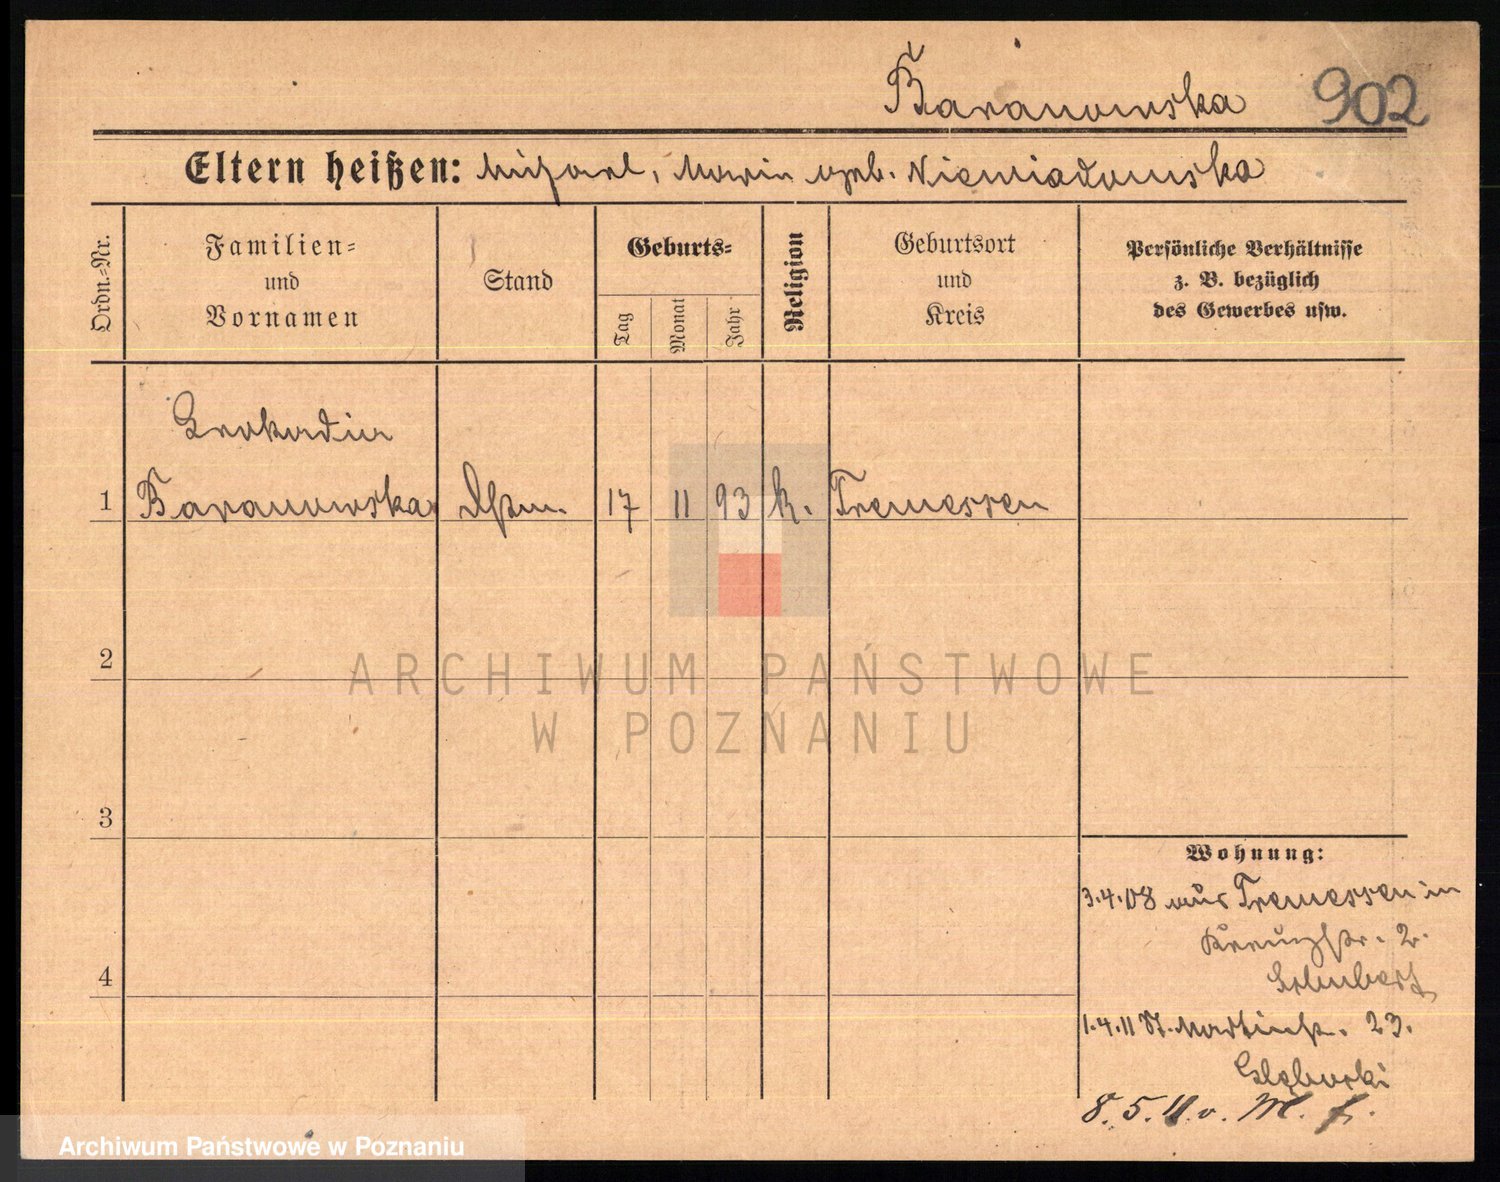 Baranowska 902
Eltern heißen: Michael, Maria geb. Niemiadomska
Ordn.-Nr.
Familien-
und
Vornamen
Stand
Geburts-
Tag
Monat
Jahr
Religion
Geburtsort
und
Kreis
Persönliche Verhältnisse
z. B. bezüglich
des Gewerbes usw.
Leokadia
1 Baranowska 17 11 93 k. Tremessen
2
3
4
Wohnung:
3.4.08 aus Tremessen in
Kreuzstr. 2.
1.4.11 St. Martinstr. 23.
8.5.11 v.
ARCHIWUM PAŃSTWOWE
W POZNANIU
Archiwum Państwowe w Poznaniu